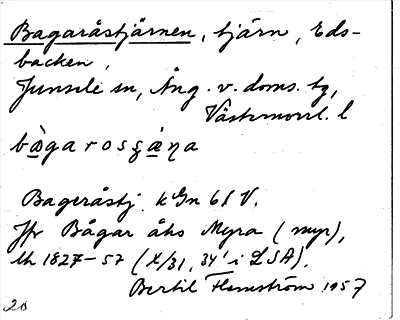 Bagaråstjärnen, tjärn, Eds-
backen,
Junsele sn, Ång. v. doms. tg,
Västernorrl. l
Bageråstj. k Gn 61 V.
Jfr Bågar åhs Myra (myr),
lh 1827–57 (X/31, 34' i LSA).
Bertil Flemström 1957
20